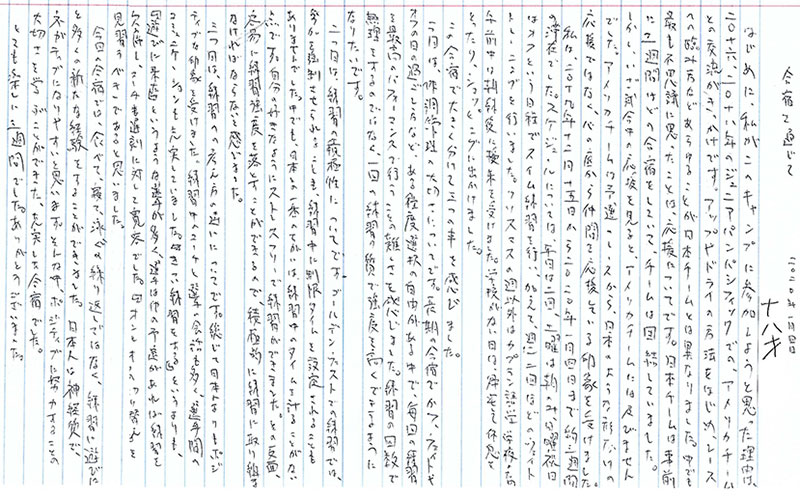 合宿を通じて
二〇二〇年一月四日
ナハオ
はじめに、私がこのキャンプに参加しようと思った理由は、
二〇十六、二〇十八年のジュニアパンパシフィックでの、アメリカチーム
との交流がきっかけです。アップやドライの方法をはじめ、レース
への臨み方などあらゆることが日本チームとは異なりました。中でも
最も不思議に思ったことは、応援についてです。日本チームは事前
に三週間ほどの合宿をしていて、チームは団結していました。
しかし、いざ試合中の応援を見ると、アメリカチームには及びません
でした。アメリカチームは予選一レースから、日本のような形だけの
応援ではなく、心の底から仲間を応援している印象を受けました。
私は、二〇十九年十二月十五日から二〇二〇年一月四日まで約三週間
の滞在でした。スケジュールについては毎日は二回、土曜は朝のみ、日曜祝日
はオフという日程でスイム練習を行い、加えて、週二三回ほどのウェイト
トレーニングを行いました。クリスマスの週以外はカプラン語学学校で
午前中は朝練後に授業を受けました。学校がない日は、
ったり、ショッピングに出かけました。
この合宿で大きく分けて三つの事を感じました。
一つ目は、体調管理の大切さについてです。長期の合宿でかつ、ウェイトや
オフの日の過ごし方など、ある程度選択の自由がある中で、毎回の練習
を最高のパフォーマンスで行うことの難しさを感じました。練習の回数で
無理をするのではなく、一回の練習の質で強度を高くできるように
なりたいです。
二つ目は、練習の積極性についてです。ゴールデンウェストでの練習では、
タイムを強制させられることも、練習中に制限タイムを設定されることも
ありませんでした。中でも、日本と一番のちがいは、練習中のタイムを計ることがない
点です。自分の好きなようにストレスフリーで練習ができました。その反面、
容易に練習強度を落とすことができるので、積極的に練習に取り組ま
なければならないと感じました。
三つ目は、練習への考え方の違いについてです。総じて日本人よりもポジ
ティブな印象を受けました。練習中のスイマー選手の会話も多く、選手間の
コミュニケーションも充実していました。
遊びに来ているというような選手が多く、選手は他の予定があれば練習を
欠席し、コーチも遅刻に対して寛容でした。回オンとオフのきり替えを
見習うべきであると思いました。
今回の合宿では、食べて、寝て、泳ぐの繰り返しではなく、練習に遊びに
と多くの新たな経験をすることができました。日本人は神経質で、
ネガティブになりやすいと思います。そんな中、ポジティブに努力することの
大切さを学ぶことができた、充実した合宿でした。
とても楽しい三週間でした。ありがとうございました。